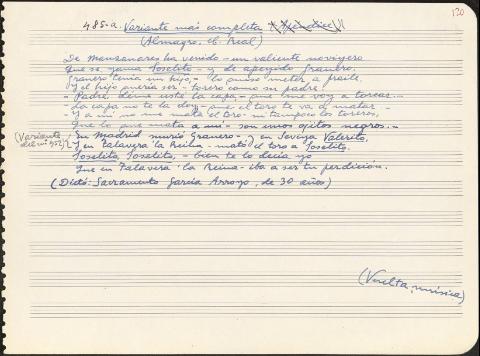 120
485-a. Variante más completa
(Almagro, C. Real)
De Manzanares ha venido - un valiente noviyero
Que se yama Joselito - y de apeyido Granero.
Granero tenía un hijo, - lo quiso meter a fraile,
Y el hijo quería ser - torero como su padre.
- Padre, deme usté la capa, - que me voy a torear. -
- La capa no te la doy, - que el toro te va a matar. -
- Y a mí no me mata el toro - ni tampoco los toreros,
Que lo que mata a mí - son unos ojitos negros. -
(Variante del nº 452) En Madrid murió Granero - y en Seviya Valerito,
Y en Talavera 'la Reina - mató el toro a Joselito.
Joselito, Joselito, - bien te lo decía yo
Que en Talavera 'la Reina - iba a ser tu perdición.
(Dictó: Sacramento García Arroyo, de 30 años)
(Vuelta, música)